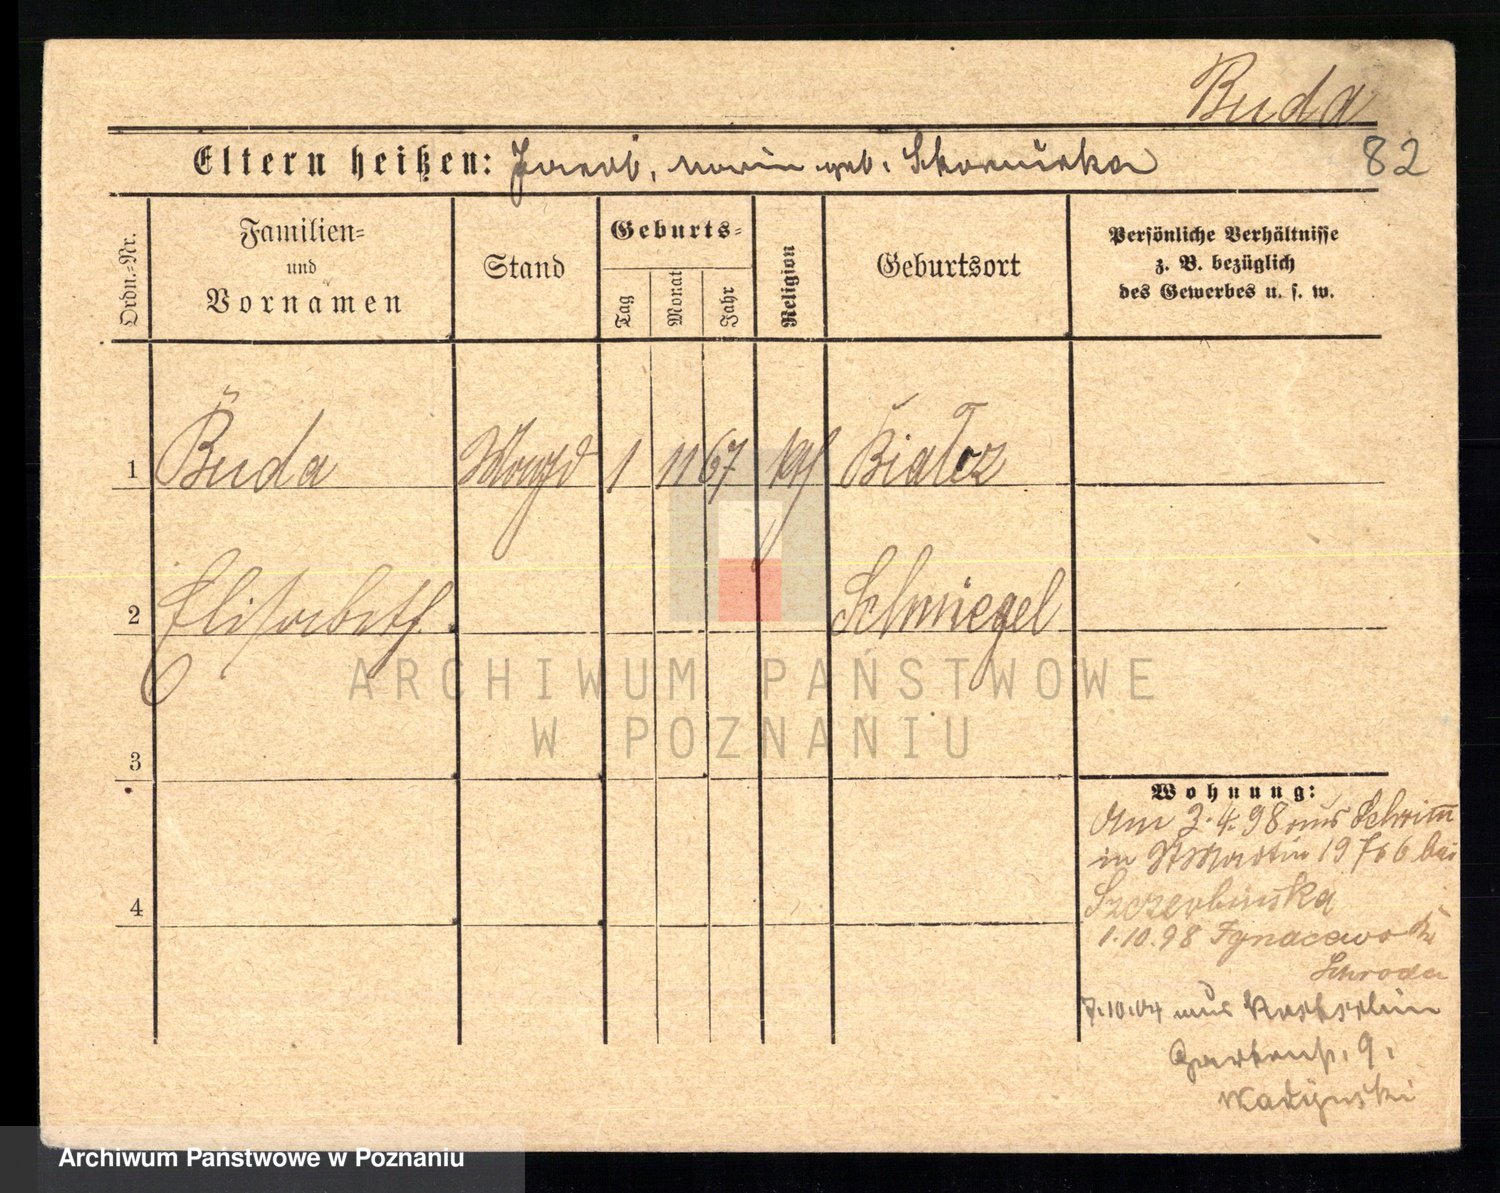 Buda
82
Eltern heißen: Jacob, Marin geb. Skorcúska
Ordn.-Nr.
Familien-
und
Vornamen
Stand
Geburts-
Tag
Monat
Jahr
Religion
Geburtsort
Persönliche Verhältnisse
z. B. bezüglich
des Gewerbes u. s. w.
1 Buda Magd 1 11 67 kath Białcz
2 Elisabeth Schmiegel
3
4
Wohnung:
Am 3.4.98 aus Schrimm
in St Martin 19 bei
Szczerbinska
1.10.98 Ignacewo
Schroda
7.10.04 aus
Gartenstr. 9.
ARCHIWUM PAŃSTWOWE
W POZNANIU
Archiwum Państwowe w Poznaniu